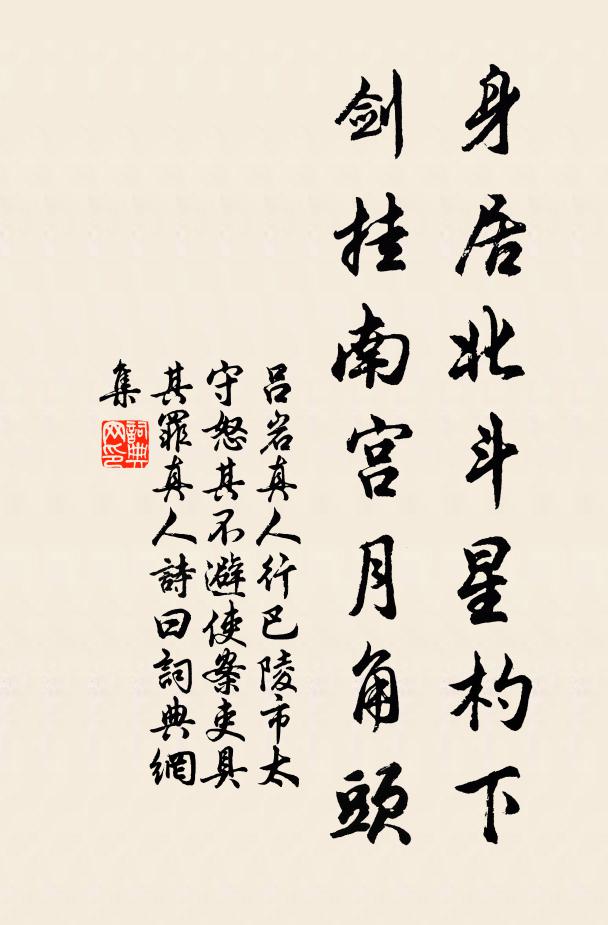 身居北斗星杓下
剑挂南宫月角頭
吕岩真人行巴陵市太
守怒其不避使案吏具
其罪真人詩曰詞典網
集
詞典
网印